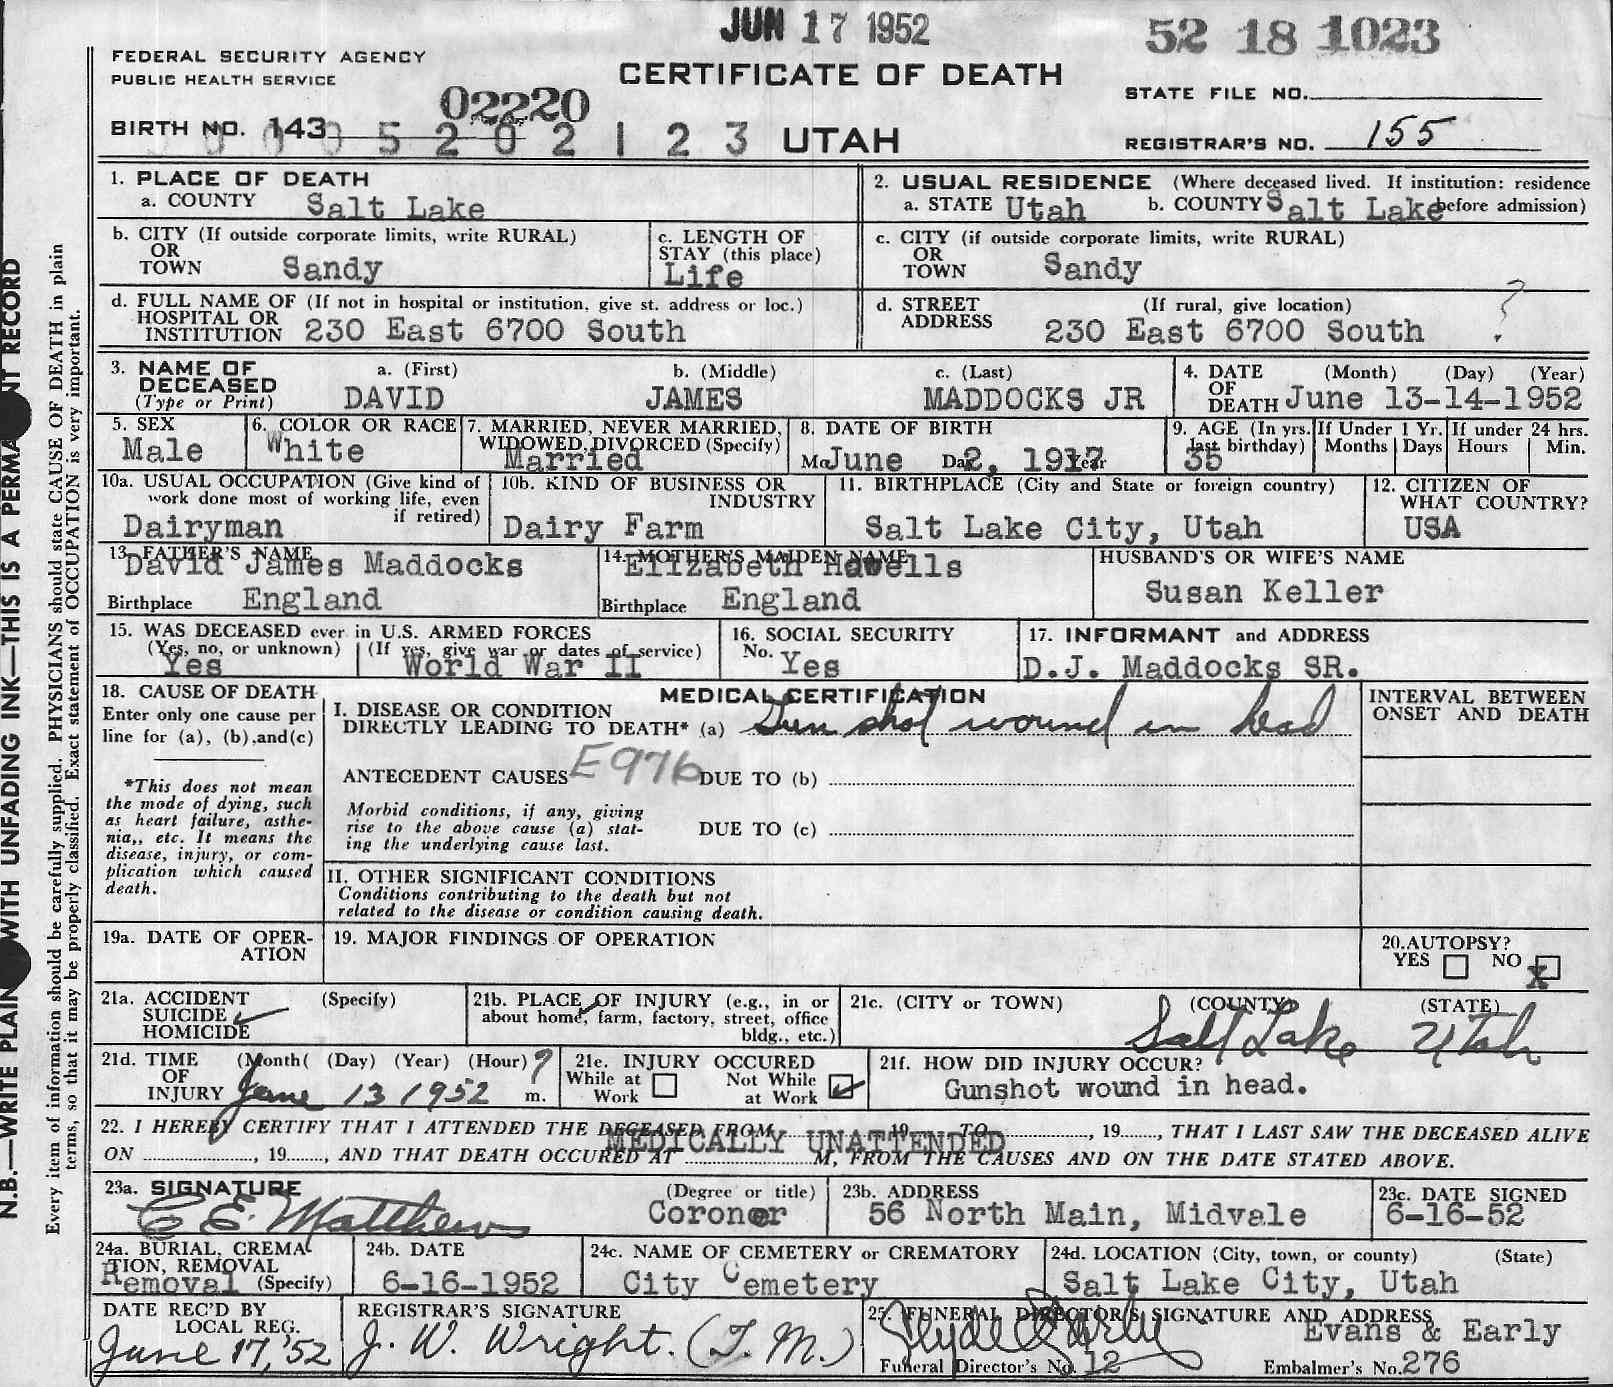 JUN 17 1952
52 18 1023
FEDERAL SECURITY AGENCY
PUBLIC HEALTH SERVICE
CERTIFICATE OF DEATH
STATE FILE NO.
02220
BIRTH NO. 143
5 2 0 2 1 2 3
UTAH
REGISTRAR'S NO. 155
1. PLACE OF DEATH
a. COUNTY Salt Lake
2. USUAL RESIDENCE (Where deceased lived. If institution: residence before admission)
a. STATE Utah b. COUNTY Salt Lake
b. CITY (If outside corporate limits, write RURAL)
OR
TOWN Sandy
c. LENGTH OF
STAY (this place)
Life
c. CITY (if outside corporate limits, write RURAL)
OR
TOWN Sandy
d. FULL NAME OF (If not in hospital or institution, give st. address or loc.)
HOSPITAL OR
INSTITUTION 230 East 6700 South
d. STREET (If rural, give location)
ADDRESS 230 East 6700 South ?
3. NAME OF DECEASED
(Type or Print)
a. (First) b. (Middle) c. (Last)
DAVID JAMES MADDOCKS JR
4. DATE (Month) (Day) (Year)
OF
DEATH June 13-14-1952
5. SEX
Male
6. COLOR OR RACE
White
7. MARRIED, NEVER MARRIED,
WIDOWED, DIVORCED (Specify)
Married
8. DATE OF BIRTH
June 2, 1917
9. AGE (In yrs. last birthday)
35
If Under 1 Yr.
Months Days
If under 24 hrs.
Hours Min.
10a. USUAL OCCUPATION (Give kind of
work done most of working life, even
if retired)
Dairyman
10b. KIND OF BUSINESS OR
INDUSTRY
Dairy Farm
11. BIRTHPLACE (City and State or foreign country)
Salt Lake City, Utah
12. CITIZEN OF
WHAT COUNTRY?
USA
13. FATHER'S NAME
David James Maddocks
Birthplace England
14. MOTHER'S MAIDEN NAME
Elizabeth Howells
Birthplace England
HUSBAND'S OR WIFE'S NAME
Susan Keller
15. WAS DECEASED ever in U.S. ARMED FORCES
(Yes, no, or unknown) (If yes, give war or dates of service)
Yes World War II
16. SOCIAL SECURITY
No. Yes
17. INFORMANT and ADDRESS
D.J. Maddocks SR.
18. CAUSE OF DEATH
Enter only one cause per
line for (a), (b), and(c)
*This does not mean
the mode of dying, such
as heart failure, asthe-
nia,, etc. It means the
disease, injury, or com-
plication which caused
death.
MEDICAL CERTIFICATION
I. DISEASE OR CONDITION
DIRECTLY LEADING TO DEATH* (a) Gun shot wound in head
ANTECEDENT CAUSES E976 DUE TO (b)
Morbid conditions, if any, giving
rise to the above cause (a) stat-
ing the underlying cause last.
DUE TO (c)
II. OTHER SIGNIFICANT CONDITIONS
Conditions contributing to the death but not
related to the disease or condition causing death.
INTERVAL BETWEEN
ONSET AND DEATH
19a. DATE OF OPER-
ATION
19. MAJOR FINDINGS OF OPERATION
20. AUTOPSY?
YES NO X
21a. ACCIDENT (Specify)
SUICIDE
HOMICIDE
21b. PLACE OF INJURY (e.g., in or
about home, farm, factory, street, office
bldg., etc.)
21c. (CITY or TOWN) (COUNTY) (STATE)
Salt Lake Utah
21d. TIME (Month( (Day) (Year) (Hour) ?
OF
INJURY June 13 1952 m.
21e. INJURY OCCURED
While at Work
Not While at Work
21f. HOW DID INJURY OCCUR?
Gunshot wound in head.
22. I HEREBY CERTIFY THAT I ATTENDED THE DECEASED FROM , 19 TO , 19 , THAT I LAST SAW THE DECEASED ALIVE
MEDICALLY UNATTENDED
ON , 19 , AND THAT DEATH OCCURED AT M, FROM THE CAUSES AND ON THE DATE STATED ABOVE.
23a. SIGNATURE (Degree or title)
C E. Matthews Coroner
23b. ADDRESS
56 North Main, Midvale
23c. DATE SIGNED
6-16-52
24a. BURIAL, CREMA-
TION, REMOVAL
Removal (Specify)
24b. DATE
6-16-1952
24c. NAME OF CEMETERY or CREMATORY
City Cemetery
24d. LOCATION (City, town, or county) (State)
Salt Lake City, Utah
DATE REC'D BY
LOCAL REG.
June 17, '52
REGISTRAR'S SIGNATURE
J. W. Wright. (T. M.)
25. FUNERAL DIRECTOR'S SIGNATURE AND ADDRESS
Evans & Early
Funeral Director's No. 12 Embalmer's No. 276
N.B.—WRITE PLAIN WITH UNFADING INK—THIS IS A PERMA NT RECORD
Every item of information should be carefully supplied. PHYSICIANS should state CAUSE OF DEATH in plain
terms, so that it may be properly classified. Exact statement of OCCUPATION is very important.